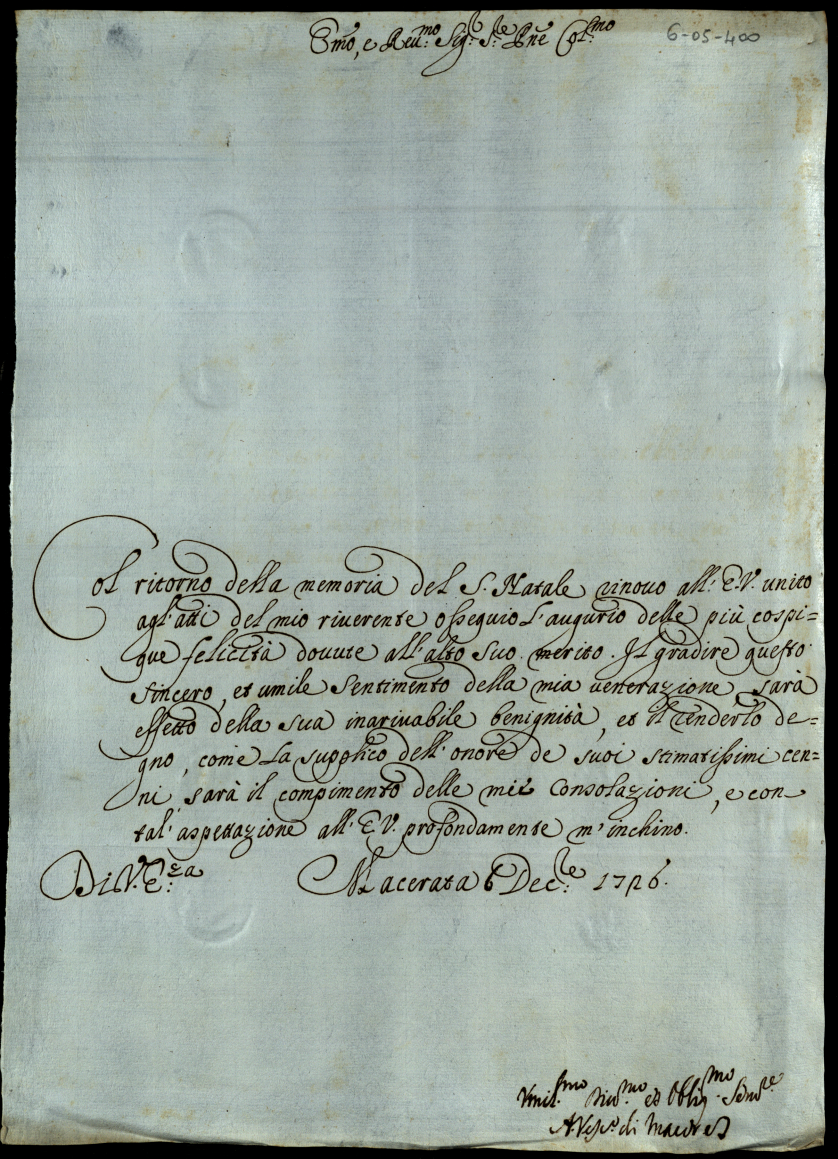 Emõ, e Reu:mo Sig.r S.re Pne Col.mo
6-05-400
Col ritorno della memoria del S. Natale rinovo all' E.V. unito
agl'atti del mio riverente ossequio l'augurio delle più cospi=
que felicità dovute all' alto suo merito. Il gradire questo
sincero, et umile sentimento della mia venerazione, sarà
effetto della sua inarivabile benignità, et il renderlo de=
gno, come La supplico dell' onore de suoi stimatissimi cen=
ni, sarà il compimento delle mie consolazioni, e con
tal' aspettazione all' E.V. profondamente m'inchino.
Di V. E.za Macerata 6 Dec:re 1726.
Vmil.mo Diu.mo et Oblig.mo Seru.re
A. Vesc.o di Macer.a